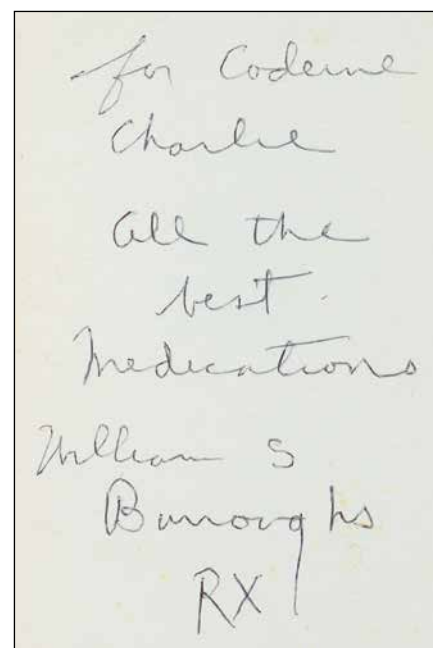 for Codeine
Charlie
All the
best.
Medications
William S
Burroughs
RX